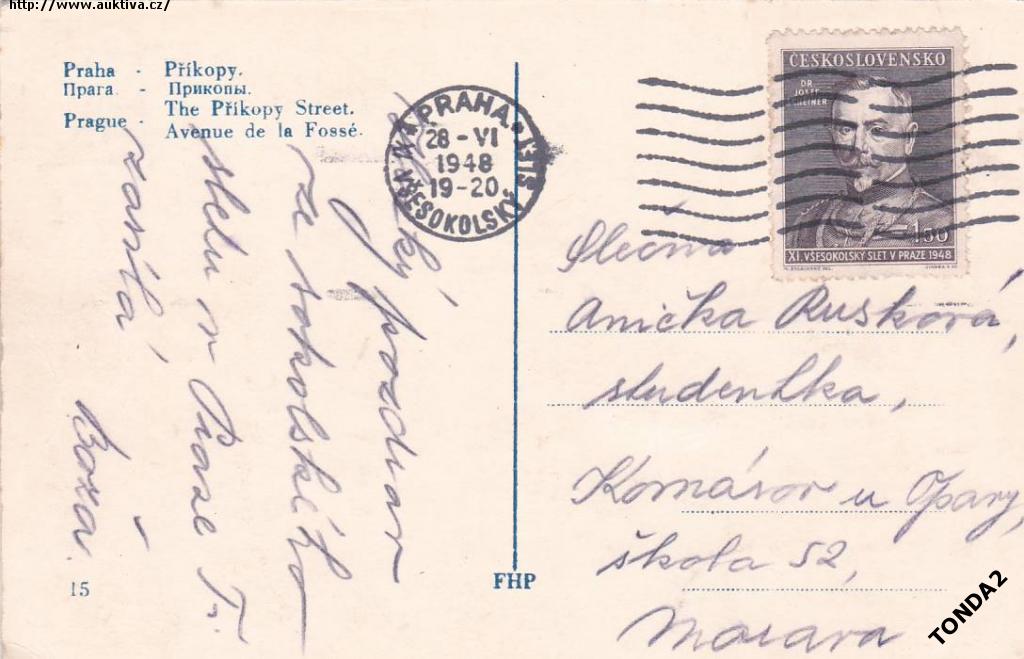 http://www.auktiva.cz/
Praha - Příkopy.
Прага - Прикопы.
Prague - The Příkopy Street.
Avenue de la Fossé.
PRAHA
28-VI
1948
19-20
XI. VŠESOKOLSKÝ SLET
ČESKOSLOVENSKO
DR
JOSEF
SCHEINER
1.50
XI. VŠESOKOLSKÝ SLET V PRAZE 1948
pozdrav
ze sokolského
sletu v Praze Ti
zasílá,
Boža.
Slečna
Anička Rusková,
studentka,
Komárov u Opavy,
škola 52,
Morava
15
FHP
TONDA2